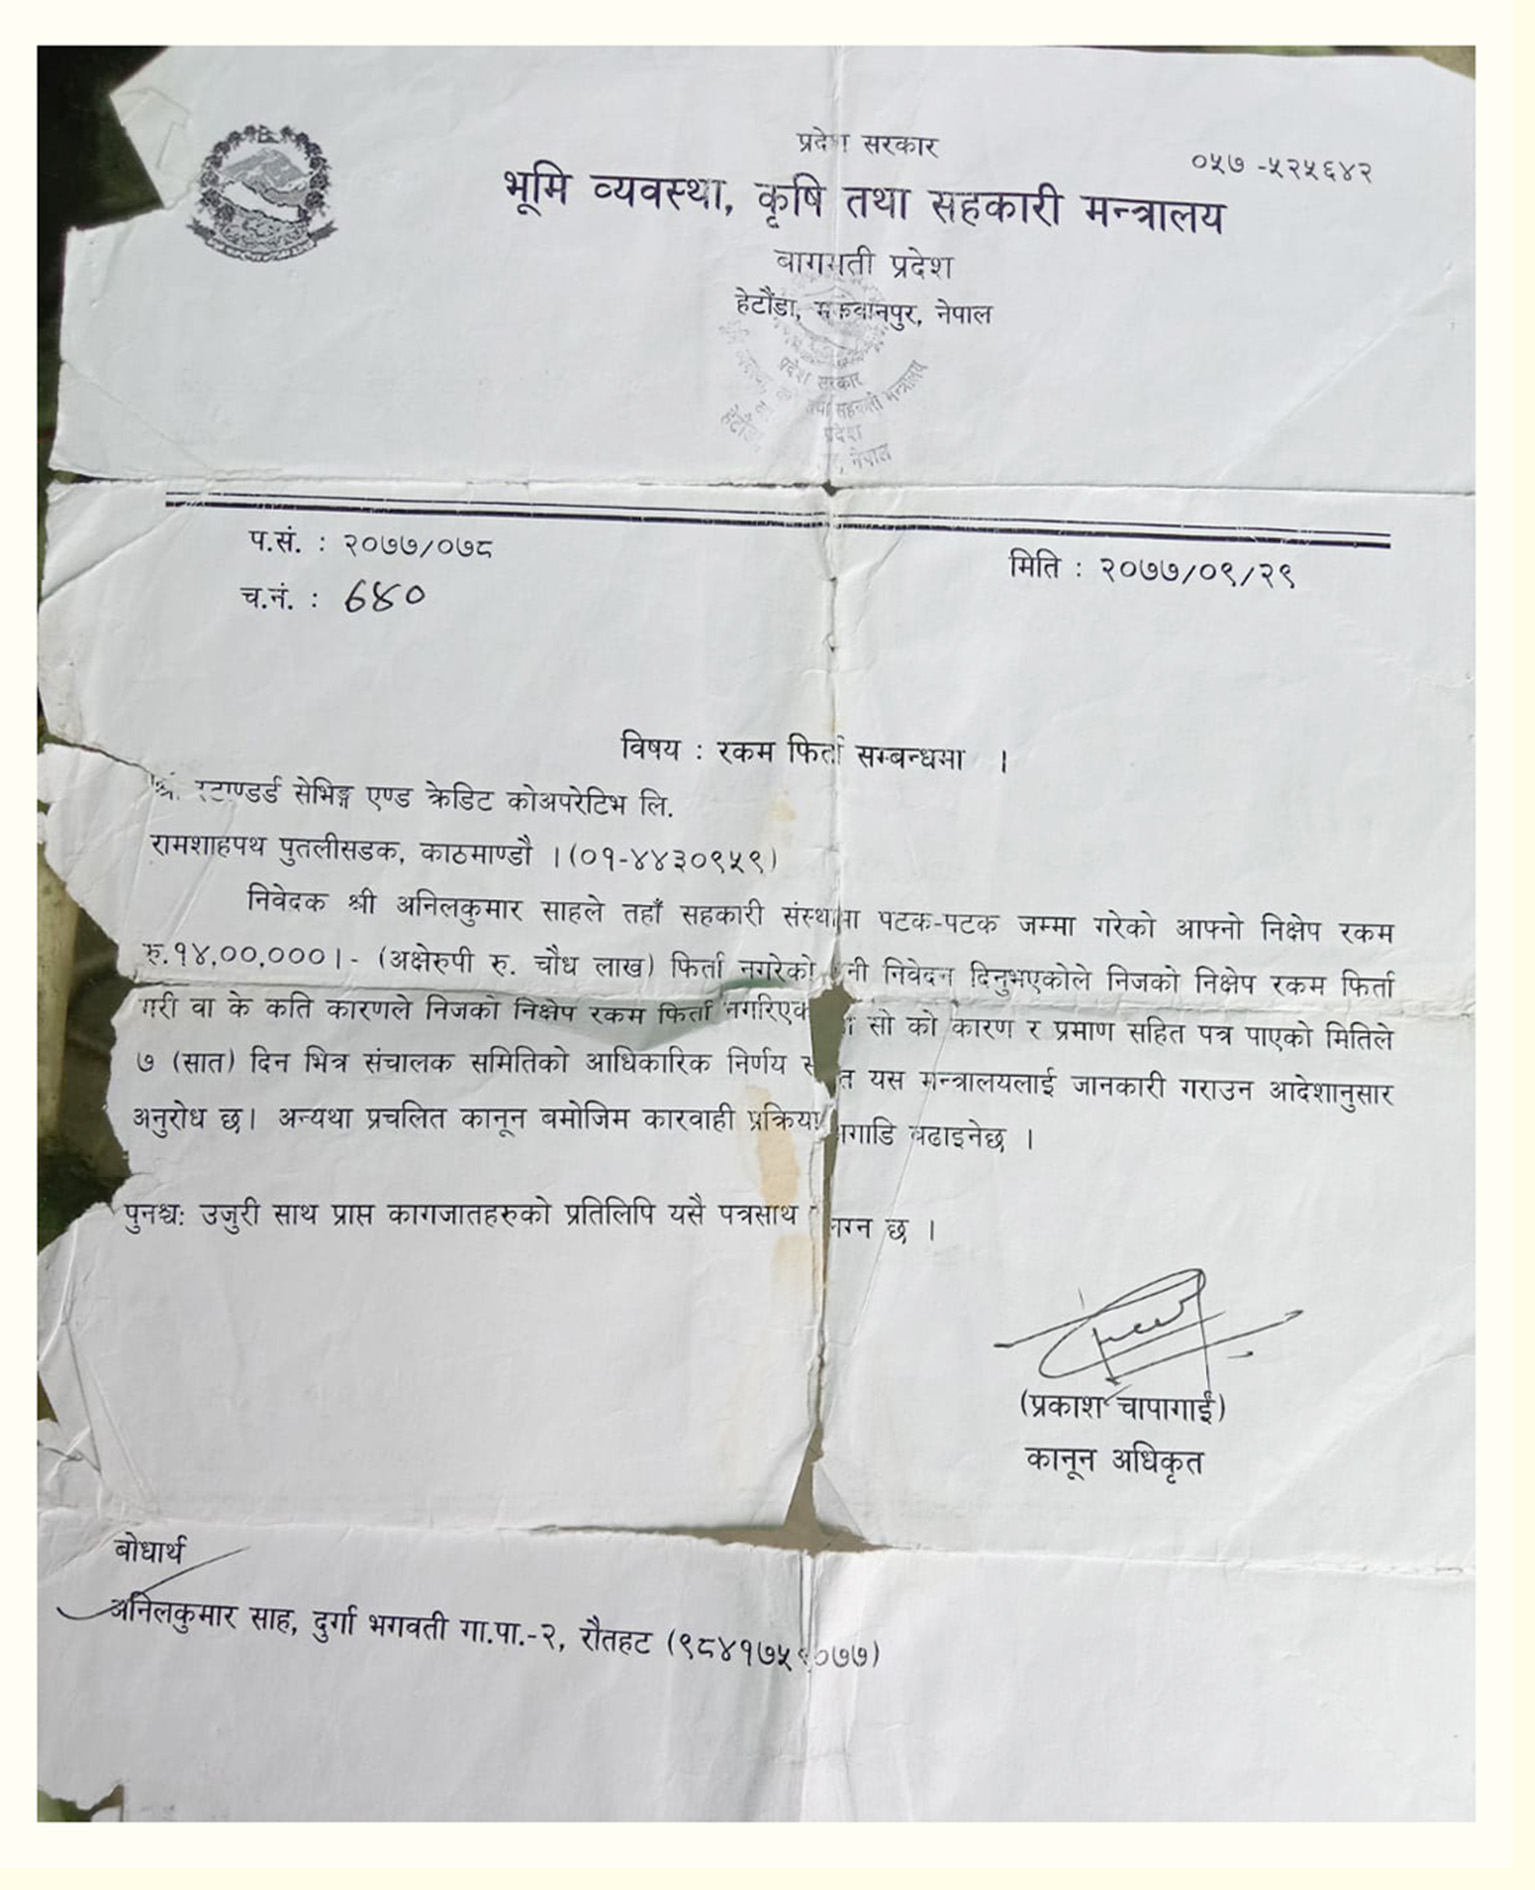 प्रदेश सरकार
०५७ -५२५६४२
भूमि व्यवस्था, कृषि तथा सहकारी मन्त्रालय
बागमती प्रदेश
हेटौंडा, मकवानपुर, नेपाल
प्रदेश सरकार
तथा सहकारी मन्त्रालय
प्रदेश
नेपाल
प.सं. : २०७७/०७८
मिति : २०७७/०९/२९
च.नं. : ६४०
विषय : रकम फिर्ता सम्बन्धमा ।
श्री स्टाण्डर्ड सेभिङ्ग एण्ड क्रेडिट कोअपरेटिभ लि.
रामशाहपथ पुतलीसडक, काठमाण्डौ ।(०१-४४३०९५९)
निवेदक श्री अनिलकुमार साहले तहाँ सहकारी संस्थामा पटक-पटक जम्मा गरेको आफ्नो निक्षेप रकम
रु.१४,००,०००।- (अक्षेरुपी रु. चौध लाख) फिर्ता नगरेको भनी निवेदन दिनुभएकोले निजको निक्षेप रकम फिर्ता
गरी वा के कति कारणले निजको निक्षेप रकम फिर्ता नगरिएको सो को कारण र प्रमाण सहित पत्र पाएको मितिले
७ (सात) दिन भित्र संचालक समितिको आधिकारिक निर्णय यस मन्त्रालयलाई जानकारी गराउन आदेशानुसार
अनुरोध छ। अन्यथा प्रचलित कानून बमोजिम कारवाही प्रक्रिया अगाडि बढाइनेछ ।
पुनश्च: उजुरी साथ प्राप्त कागजातहरुको प्रतिलिपि यसै पत्रसाथ छ ।
(प्रकाश चापागाईं)
कानून अधिकृत
बोधार्थ
अनिलकुमार साह, दुर्गा भगवती गा.पा.-२, रौतहट